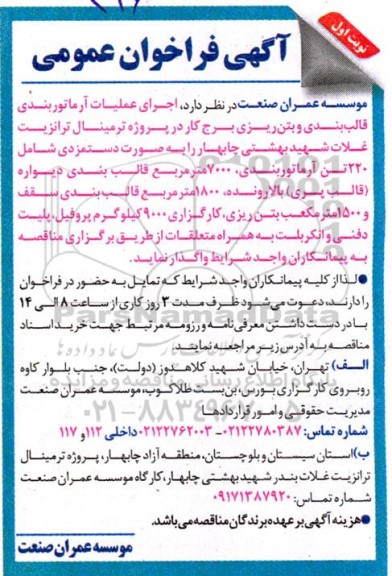 نوبت اول
آگهی فراخوان عمومی
موسسه عمران صنعت در نظر دارد، اجرای عملیات آرماتوربندی
قالب‌بندی و بتن‌ریزی برج کار در پروژه ترمینال ترانزیت
غلات شهید بهشتی چابهار را به صورت دستمزدی شامل
۲۲۰ تن آرماتوربندی، ۷۰۰۰ متر مربع قالب بندی دیواره
(قالب پشتی) بالارونده، ۱۸۰۰ متر مربع قالب بندی سقف
و ۱۵۰۰ متر مکعب بتن ریزی، کارگزاری ۹۰۰۰ کیلوگرم پروفیل، پلیت
دفنی و انکربلت به همراه متعلقات از طریق برگزاری مناقصه
به پیمانکاران واجد شرایط واگذار نماید.
●لذا از کلیه پیمانکاران واجد شرایط که تمایل به حضور در فراخوان
را دارند، دعوت می‌شود ظرف مدت ۳ روز کاری از ساعت ۸ الی ۱۴
با در دست داشتن معرفی نامه و رزومه مرتبط جهت خرید اسناد
مناقصه به آدرس زیر مراجعه نمایند.
الف) تهران، خیابان شهید کلاهدوز (دولت)، جنب بلوار کاوه
روبروی کارگزاری بورس، بن بست طلاکوب، موسسه عمران صنعت
مدیریت حقوقی و امور قراردادها
شماره تماس: ۰۲۱۲۲۷۸۰۳۸۷- ۰۲۱۲۲۷۶۲۰۰۳ داخلی ۱۱۲ و ۱۱۷
ب) استان سیستان و بلوچستان، منطقه آزاد چابهار، پروژه ترمینال
ترانزیت غلات بندر شهید بهشتی چابهار، کارگاه موسسه عمران صنعت
شماره تماس: ۰۹۱۷۱۳۸۷۹۲۰
●هزینه آگهی بر عهده برندگان مناقصه می‌باشد.
موسسه عمران صنعت
ParsNamadData
۰۲۱-۸۸۳۴۹۶